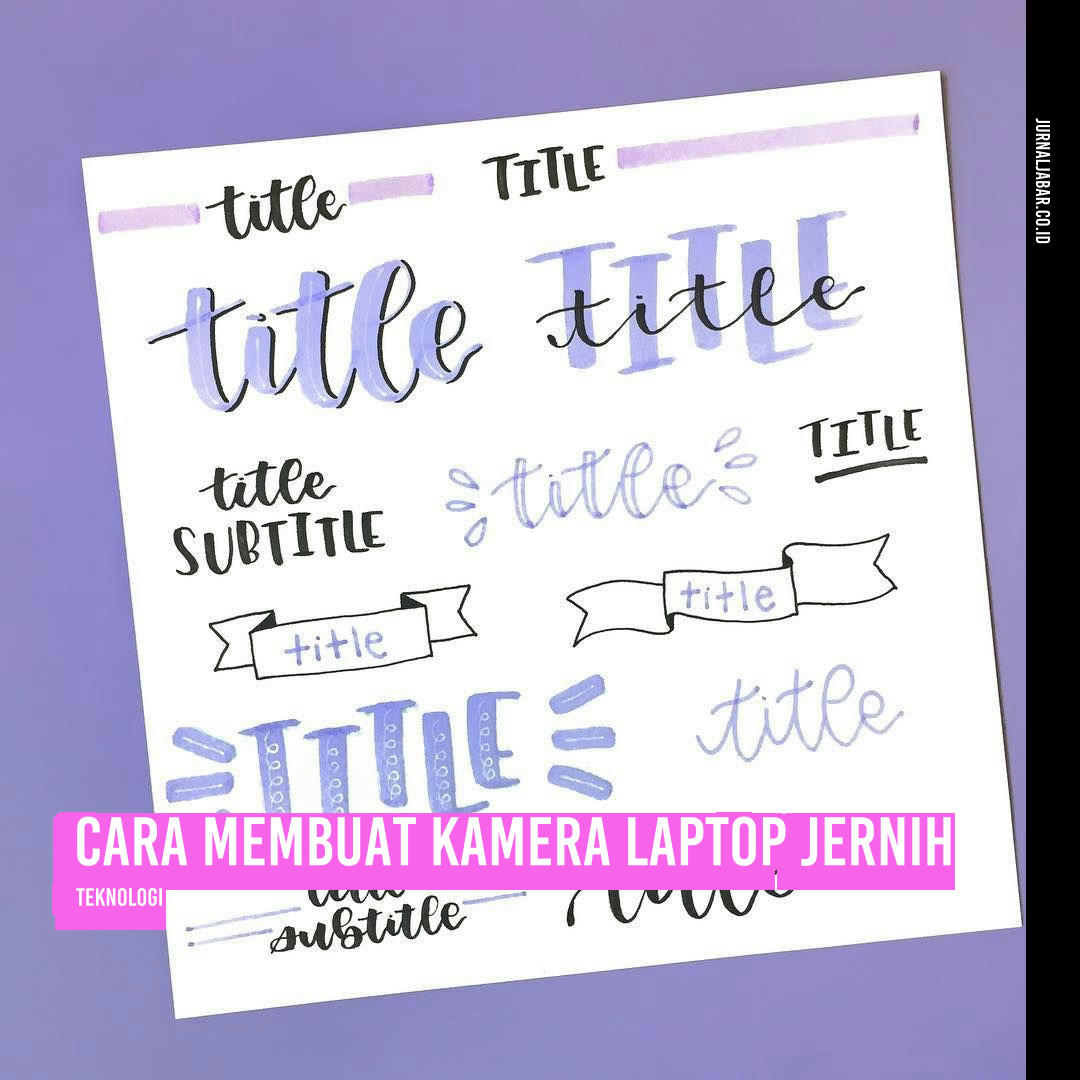 JURNALJABAR.CO.ID
title TITLE
title TITLE title
title SUBTITLE
title
TITLE
title
title
TITLE
title
CARA MEMBUAT KAMERA LAPTOP JERNIH
TEKNOLOGI
subtitle